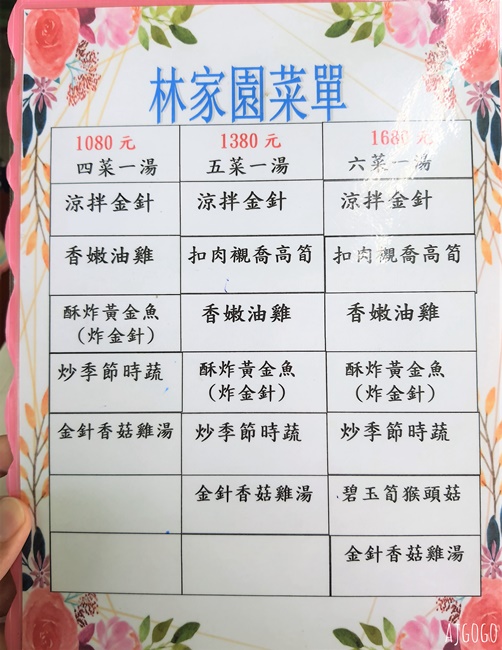 林家園菜單
1080元 1380元 1680元
四菜一湯 五菜一湯 六菜一湯
涼拌金針 涼拌金針 涼拌金針
香嫩油雞 扣肉襯喬高筍 扣肉襯喬高筍
酥炸黃金魚 香嫩油雞 香嫩油雞
（炸金針）
炒季節時蔬 酥炸黃金魚 酥炸黃金魚
（炸金針） （炸金針）
金針香菇雞湯 炒季節時蔬 炒季節時蔬
金針香菇雞湯 碧玉筍猴頭菇
金針香菇雞湯
AJGOGO